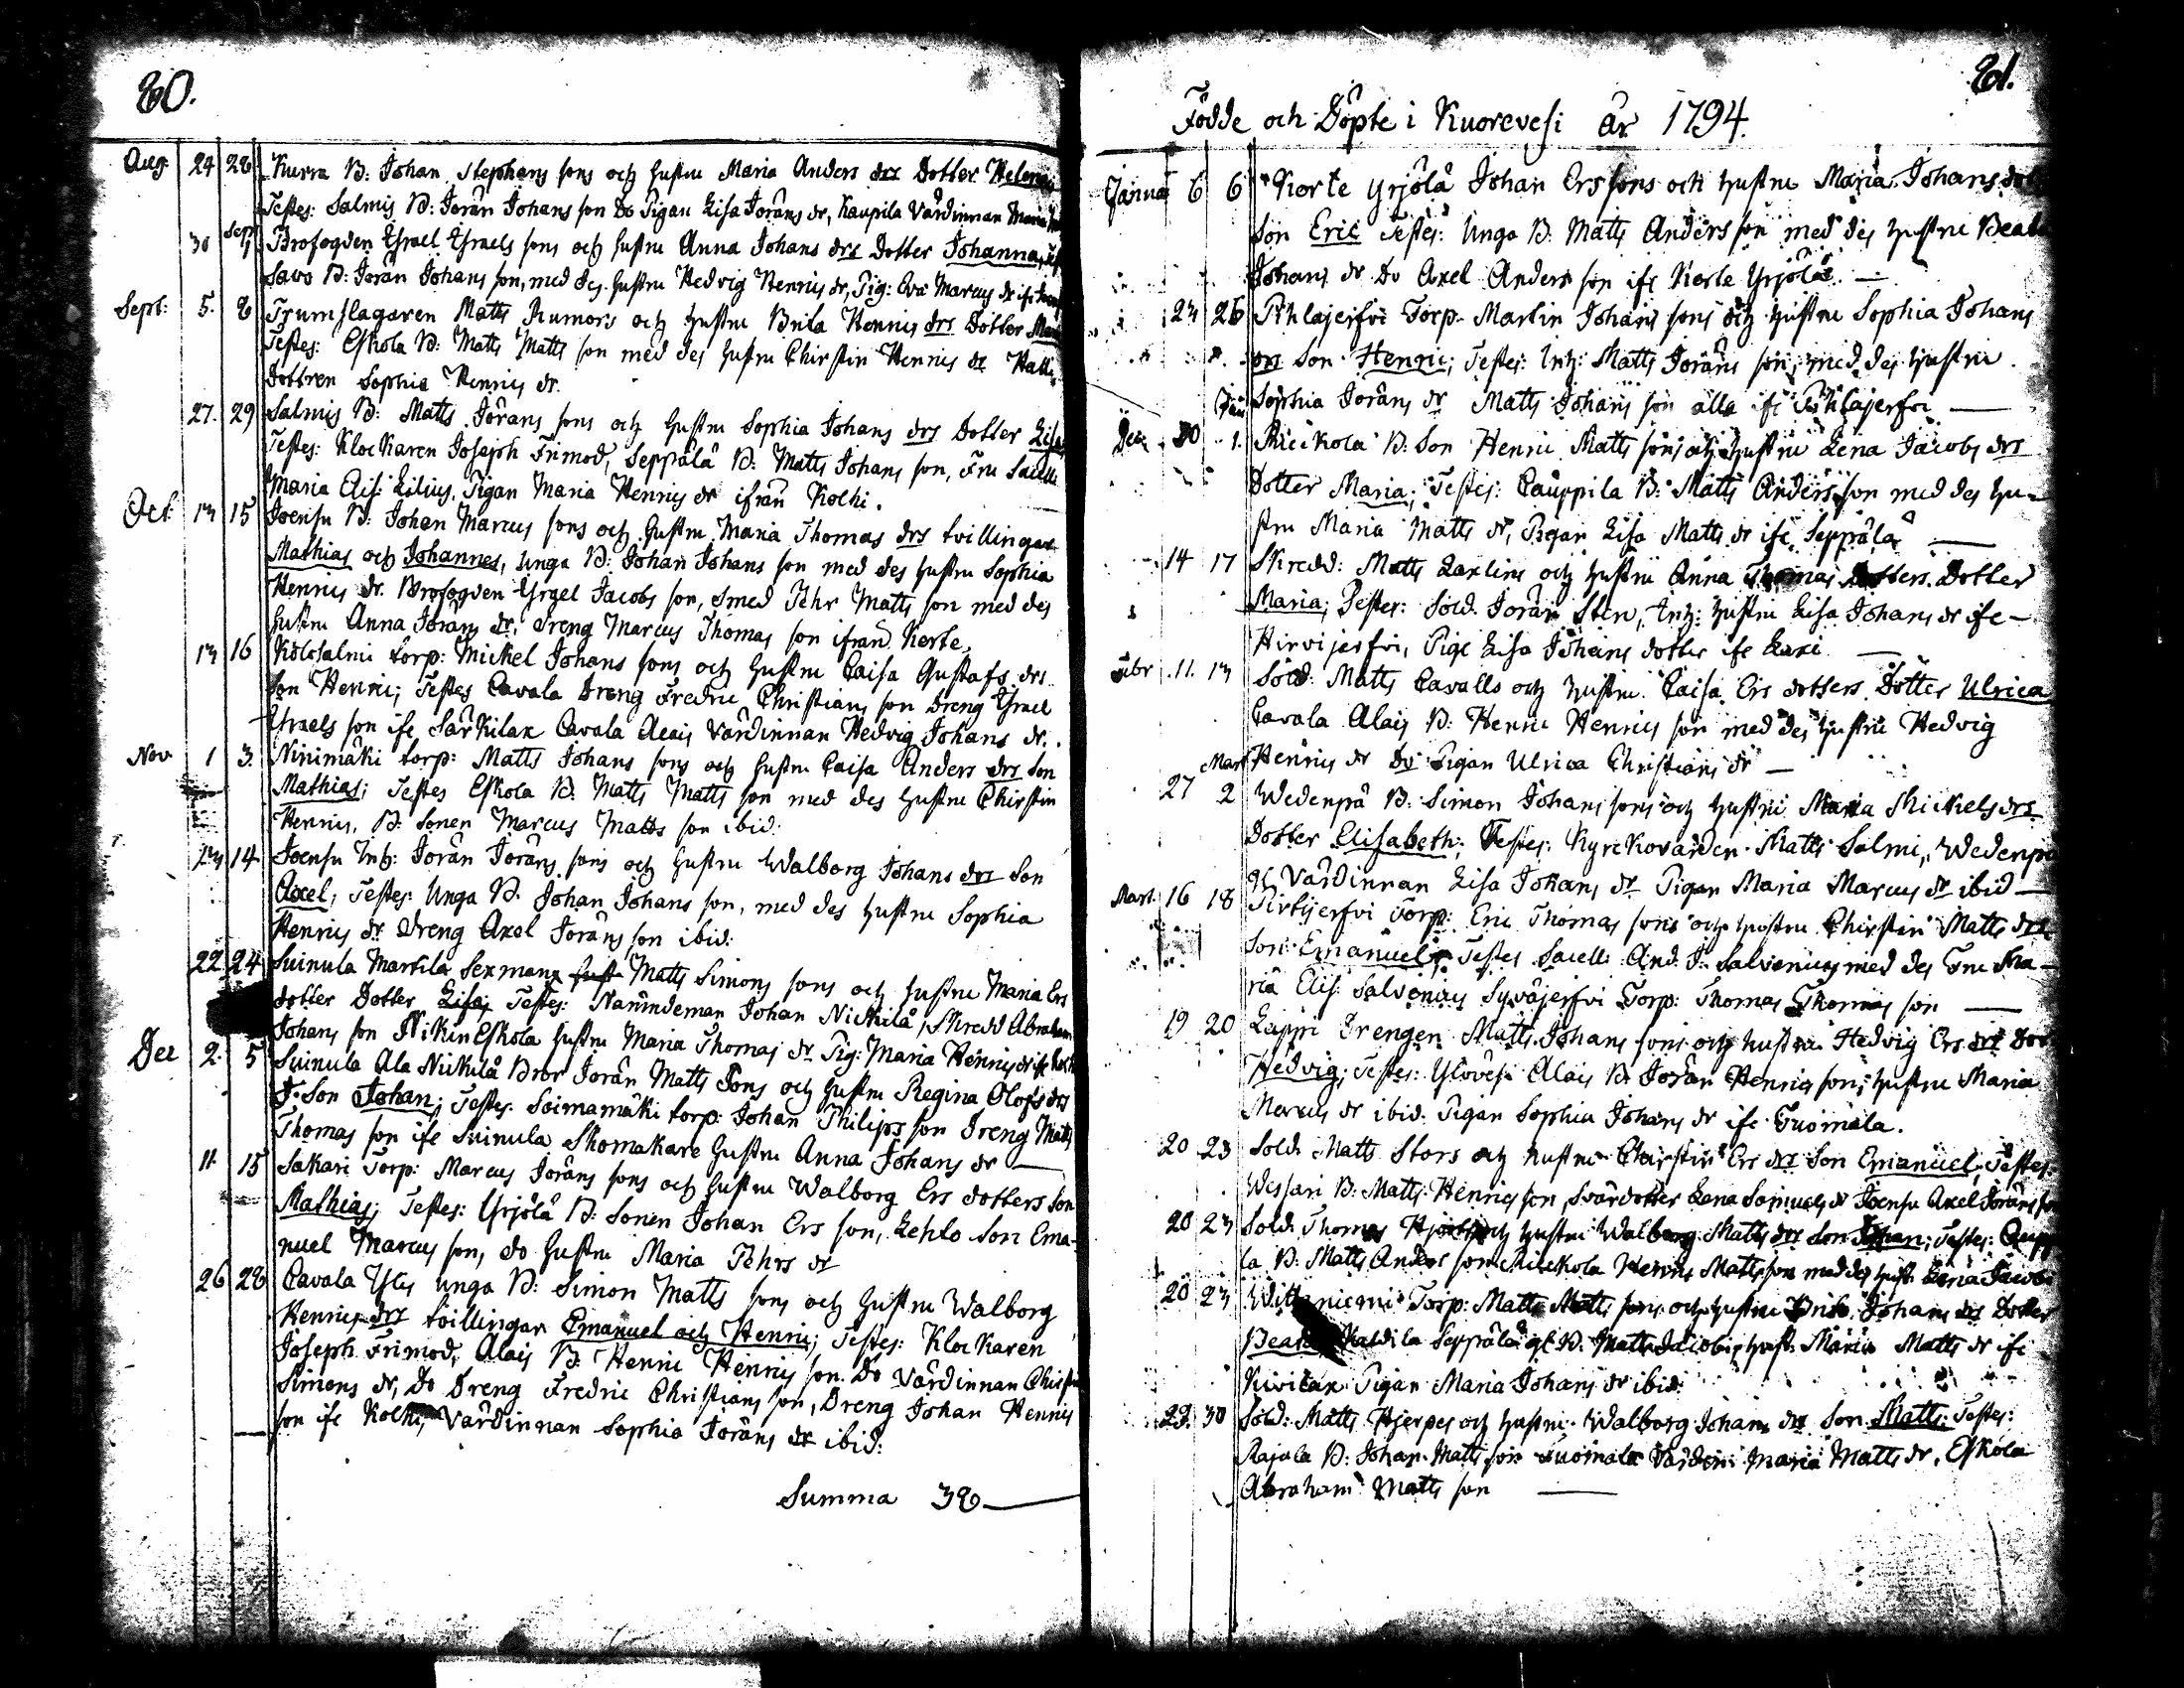 80.
Aug 24 28 Kurra B: Johan Stephans sons och hustru Maria Anders drs Dotter Helena
Testes: Salmis B: Jöran Johans son Do Pigan Lisa Jörans dr, Kaupila Värdinnan Maria
30 Sept 1 Brofogden Ysrael Ysraels sons och hustru Anna Johans drs Dotter Johanna,
Savo B: Jöran Johans son, med des hustru Hedvig Henrics dr, Pig: Eva Marcus dr ifr
Sept: 5. 8 Trumslagaren Matts Rumors och hustru Brita Henrics drs Dotter
Testes: Eskola B: Matts Matts son med des hustru Chirstin Henrics dr
Dottren Sophia Henrics dr.
27. 29 Salmis B: Matts Jörans sons och hustru Sophia Johans drs Dotter Lisa
Testes: Klockaren Joseph Frimod, Seppälä B: Matts Johans son, Fru Sacell:
Maria Elis: Lilius, Pigan Maria Henrics dr ifrån Kolhi.
Oct: 13 15 Joensu B: Johan Marcus sons och hustru Maria Thomas drs tvillingar
Mathias och Johannes, unga B: Johan Johans son med des hustru Sophia
Henrics dr. Brofogden Ysrael Jacobs son, Smed Pehr Matts son med des
hustru Anna Jörans dr, Dreng Marcus Thomas son ifrån Korte.
13 16 Kolosalmi torp: Mickel Johans sons och hustru Caisa Gustafs drs
Son Henric; Testes Cavala Dreng Fredric Christians son Dreng Ysrael
Ysraels son ifr Särkilax Cavala Alais Värdinnan Hedvig Johans dr.
Nov 1 3. Ninimäki torp: Matts Johans sons och hustru Caisa Anders drs Son
Mathias; Testes Eskola B: Matts Matts son med des hustru Chirstin
Henrics, B: Sonen Marcus Matts son ibid:
13 14 Joensu Inh: Jöran Jörans sons och hustru Walborg Johans drs Son
Axel; Testes Unga B: Johan Johans son, med des hustru Sophia
Henrics dr Dreng Axel Jörans son ibid:
22 24 Suinula Martila Sexmans Matts Simons sons och hustru Maria Ers
dotter Dotter Lisa; Testes: Nämndeman Johan Nickilä, Skredd Abraham
Johans son Eskola hustru Maria Thomas dr Pig: Maria Henrics dr ifr
Dec 2. 5 Suinula Ala Nickilä Bror Jöran Matts sons och hustru Regina Olofs drs
F. Son Johan; Testes: Soimamäki torp: Johan Philips son Dreng Matts
Thomas son ifr Suinula Skomakare hustru Anna Johans dr —
11. 15 Sakari Torp: Marcus Jörans sons och hustru Walborg Ers dotters Son
Mathias; Testes: Yrjölä B: Sonen Johan Ers son, Lehto Son Ema-
nuel Marcus son, do hustru Maria Pehrs dr
26 28 Cavala Ylis unga B: Simon Matts sons och hustru Walborg
Henrics drs tvillingar Emanuel och Henric; Testes: Klockaren
Joseph Frimod, Alais B: Henric Henrics son. Do Värdinnan
Simons dr, Do Dreng Fredric Christians son, Dreng Johan Henrics
son ifr Kolhi, Värdinnan Sophia Jörans dr ibid:
Summa 38 —
81.
Födde och Döpte i Kuorevesi år 1794.
Janua 6 6 Korte Yrjölä Johan Erssons och hustru Maria Johans
Son Eric Testes: Unga B: Matts Anders son med des hustru
Johans dr Do Axel Anders son ifr Korte Yrjölä —
23 26 Pihlajerfvi Torp. Martin Johans sons och hustru Sophia Johans
drs Son Henric; Testes: Inh: Matts Jörans son, med des hustru
Sophia Jörans dr Matts Johans son alla ifr Pihlajerfvi —
Dec 30 Jan 1. Mickola B: Son Henric Matts sons och hustru Lena Jacobs drs
Dotter Maria; Testes: Cauppila B: Matts Anders son med des hu-
stru Maria Matts dr, Pigan Lisa Matts dr ifr Seppälä —
14 17 Skredd: Matts Laxlins och hustru Anna Thomas dotters Dotter
Maria; Testes: Sold. Jöran Sten, Inh: hustru Lisa Johans dr ifr
Hirvijerfvi, Pige Lisa Johans dotter ifr —
Febr 11. 13 Sold: Matts Cavalls och hustru Caisa Ers dotters Dotter Ulrica
Cavala Alais B: Henric Henrics son med des hustru Hedvig
Henrics dr Do Pigan Ulrica Christians dr —
27 Mart 2 Wedenpä B: Simon Johans sons och hustru Maria Mickels drs
Dotter Elisabeth; Testes: Kyrckovärden Matts Salmi, Wedenpä
gl Värdinnan Lisa Johans dr Pigan Maria Marcus dr ibid —
Mart. 16 18 Pirttijerfvi Torp: Eric Thomas sons och hustru Chirstin Matts drs
Son Emanuel; Testes Sacell: And. J. Salvenius med des Fru Ma-
ria Elis: Salvenius Syväjerfvi Torp: Thomas Thomas son —
19 20 Lappi Drengen Matts Johans sons och hustru Hedvig Ers drs
Hedvig; Testes: Ylöves: Alais B: Jöran Henrics son, hustru Maria
Marcus dr ibid. Pigan Sophia Johans dr ifr Tuomala.
20 23 Sold. Matts Stors och hustru Chirstin Ers drs Son Emanuel; Testes:
Wessari B: Matts Henrics son, Svärdotter Lena Samuels dr Joensu Axel Jörans son
20 23 Sold. Thomas och hustru Walborg Matts drs Son Johan; Testes:
la B: Matts Anders son Mickola Henric Matts son med des hust: Lena Jacobs
20 23 Torp: Matts Matts sons och hustru Brita Johans drs Dotter
Seppälä gl B. Matts Jacobs hust: Maria Matts dr ifr
Kivilax Pigan Maria Johans dr ibid.
29. 30 Sold: Matts Hjerpes och hustru Walborg Johans drs Son Matts: Testes:
Rajala B: Johan Matts son Tuomala Värdin: Maria Matts dr, Eskola
Abraham Matts son —